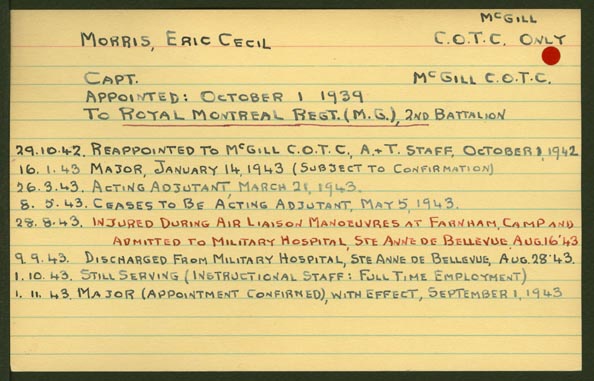 McGILL
MORRIS, ERIC CECIL C.O.T.C. ONLY
CAPT. McGILL C.O.T.C.
APPOINTED: OCTOBER 1 1939
TO ROYAL MONTREAL REGT. (M.G.), 2ND BATTALION
29.10.42. REAPPOINTED TO McGILL C.O.T.C., A.+T. STAFF, OCTOBER 1, 1942
16.1.43 MAJOR, JANUARY 14, 1943 (SUBJECT TO CONFIRMATION)
26.3.43. ACTING ADJUTANT, MARCH 21, 1943.
8.5.43. CEASES TO BE ACTING ADJUTANT, MAY 5, 1943.
28.8.43. INJURED DURING AIR LIAISON MANOEUVRES AT FARNHAM, CAMP AND
ADMITTED TO MILITARY HOSPITAL, STE ANNE DE BELLEVUE, AUG.16'43
9.9.43. DISCHARGED FROM MILITARY HOSPITAL, STE ANNE DE BELLEVUE, AUG.28'43.
1.10.43. STILL SERVING (INSTRUCTIONAL STAFF: FULL TIME EMPLOYMENT)
1.11.43. MAJOR (APPOINTMENT CONFIRMED), WITH EFFECT, SEPTEMBER 1, 1943